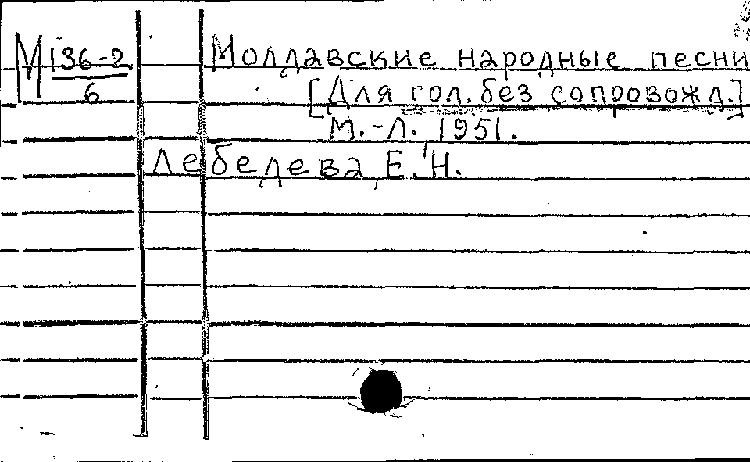 М 136-2 Молдавские народные песни
6 [Для гол. без сопровожд.]
М.-Л., 1951.
Лебедева, Е.Н.